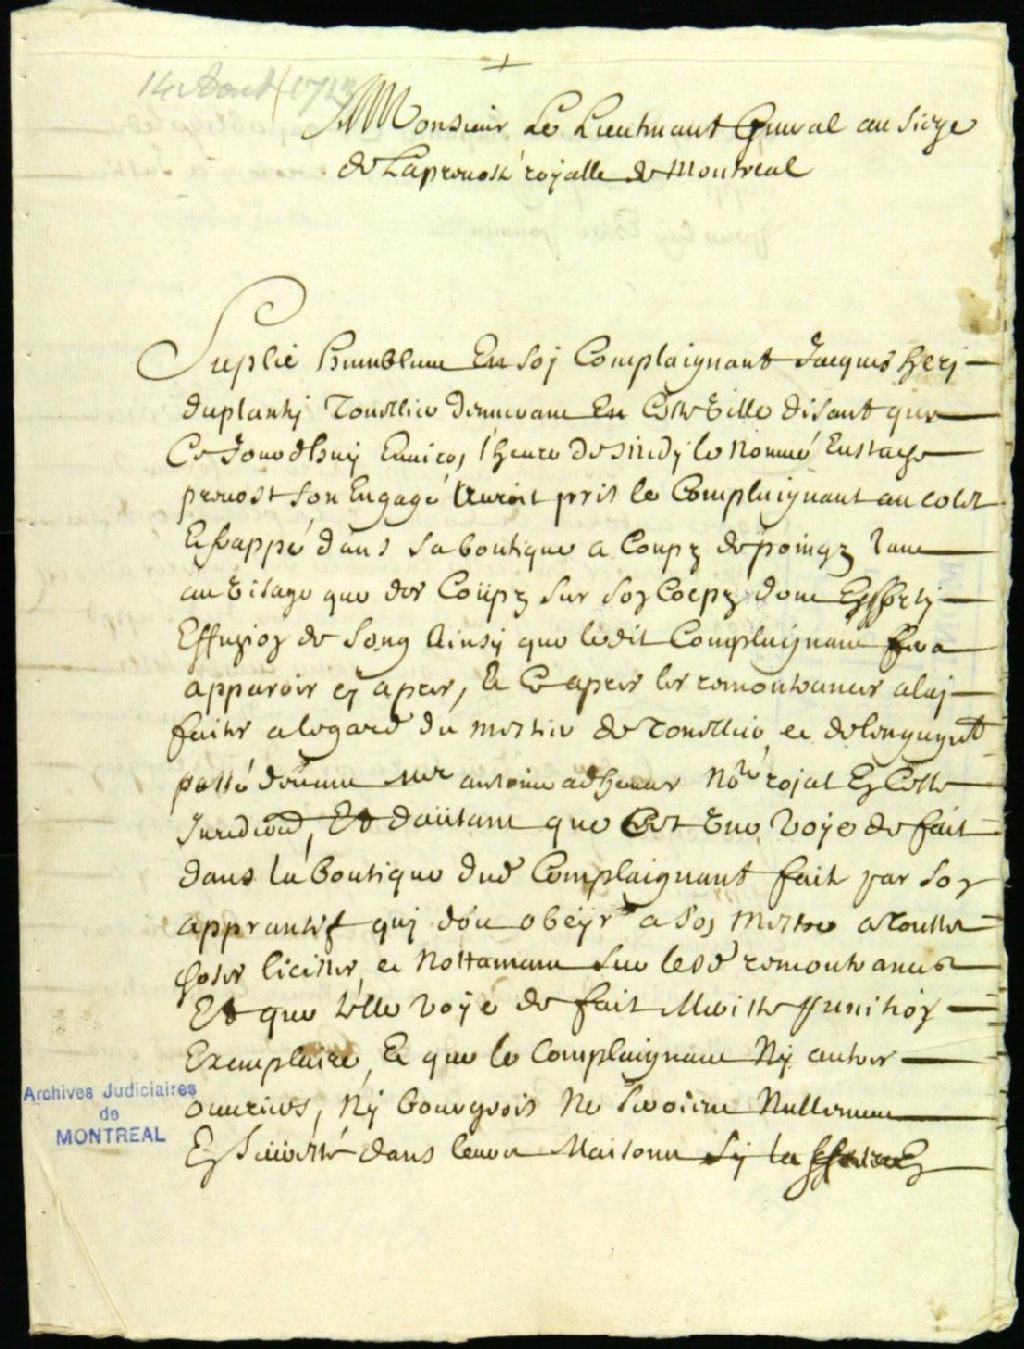 14 Aout 1713
A Monsieur Le Lieutenant General au siege
de La prevosté royalle de Montreal
Suplie humblem En son Complaignant Jacques hery
duplanty Tonellier demeurant En Cette Ville disant que
Ce Jourdhuy Environ lheure de midy le Nommé Eustache
prevost son Engagé Auroit pris le Complaignant au colet
Et frappé dans sa boutique a Coups de poings tant
au Visage que des Coups sur son Corps dont
Effuzion de Sang Ainsy que ledit Complaignant fera
apparoir cy apres, Et Ce apres les remontrances a luy
faites a legard du mestier de Tonellier, et de lengagemt
passé devant Mre antoine adhemar Nore royal En Cette
Juridion, Et dautant que Cest Une Voye de fait
dans la Boutique dud Complaignant fait par son
apprantif quj doit obeyr a son Mestre a Touttes
choses licittes, et Nottament sur lesd remontrances
Et que telle Voye de fait Meritte punition
Exemplaire, Et que le Complaignant Ny autres
ouvriers, Ny bourgeois Ne seroient Nullement
En Seureté dans leurs Maisons sy la
Archives Judiciaires
de
MONTREAL